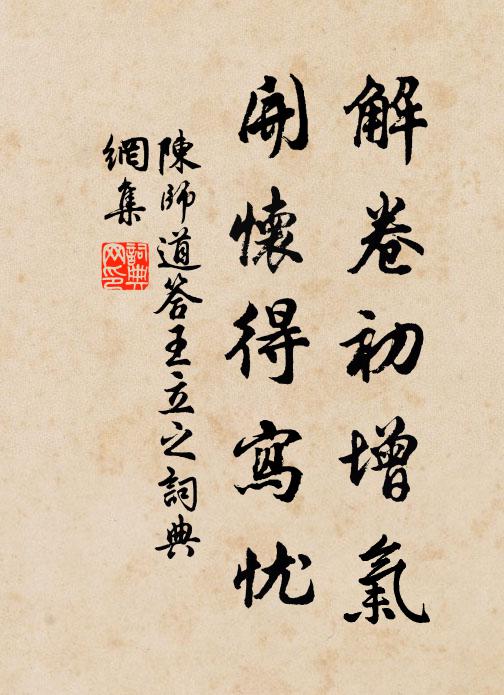 解卷初增氣
開懷得寫忧
陳師道答王立之詞典
網集
詞典網印